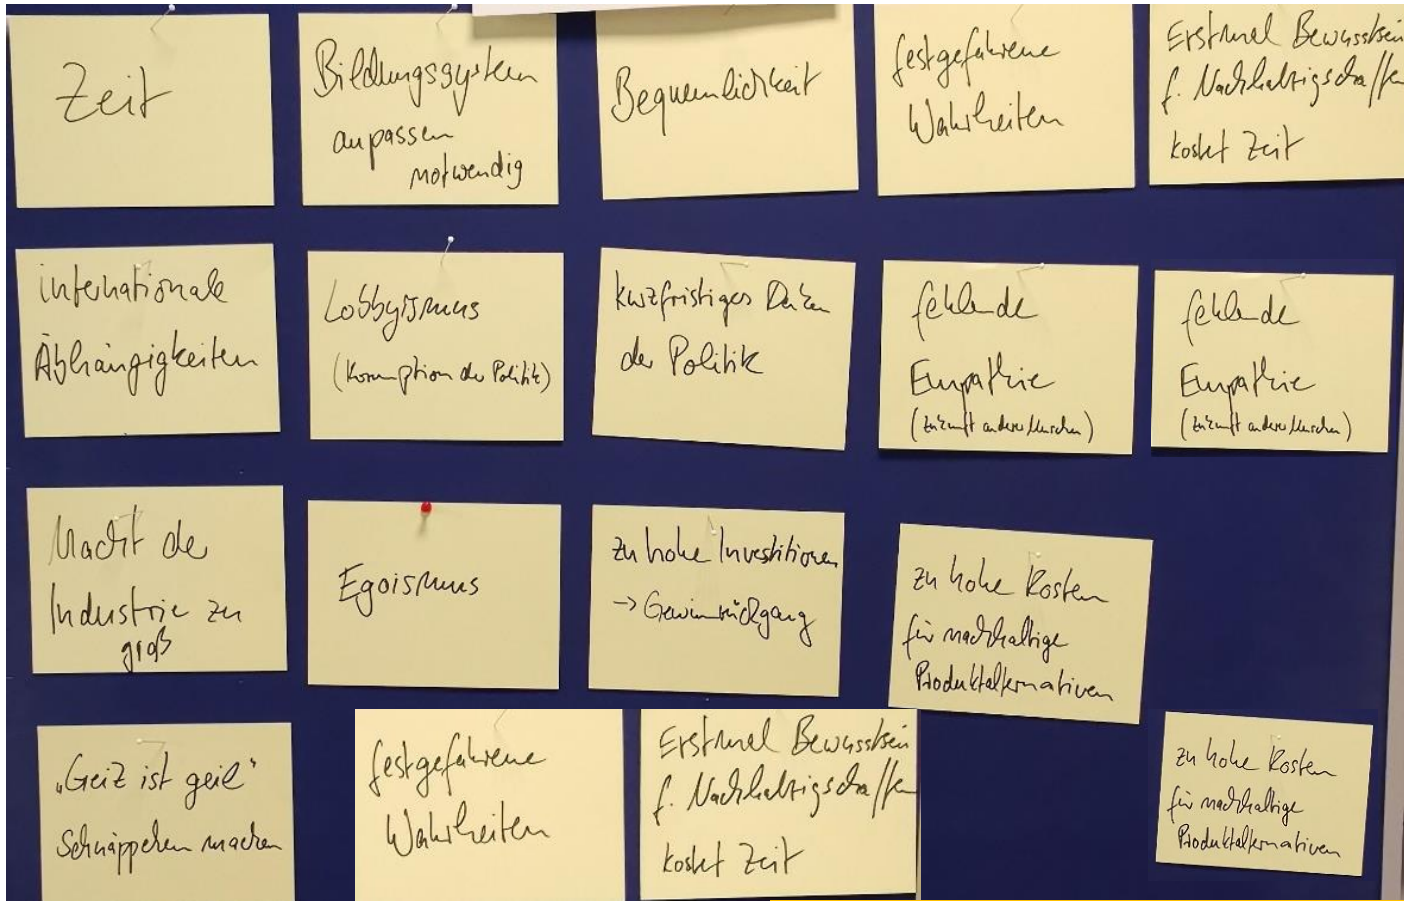 Zeit
Bildungssystem
anpassen
notwendig
Bequemlichkeit
festgefahrene
Wahrheiten
Erstmal Bewusstsein
f. Nachhaltigschaffen
kostet Zeit
internationale
Abhängigkeiten
Lobbyismus
(Korruption der Politik)
kurzfristiges Denken
der Politik
fehlende
Empathie
(Zukunft anderer Menschen)
fehlende
Empathie
(Zukunft anderer Menschen)
Macht der
Industrie zu
groß
Egoismus
zu hohe Investitionen
→ Gewinnrückgang
zu hohe Kosten
für nachhaltige
Produktalternativen
„Geiz ist geil“
Schnäppchen machen
festgefahrene
Wahrheiten
Erstmal Bewusstsein
f. Nachhaltigschaffen
kostet Zeit
zu hohe Kosten
für nachhaltige
Produktalternativen